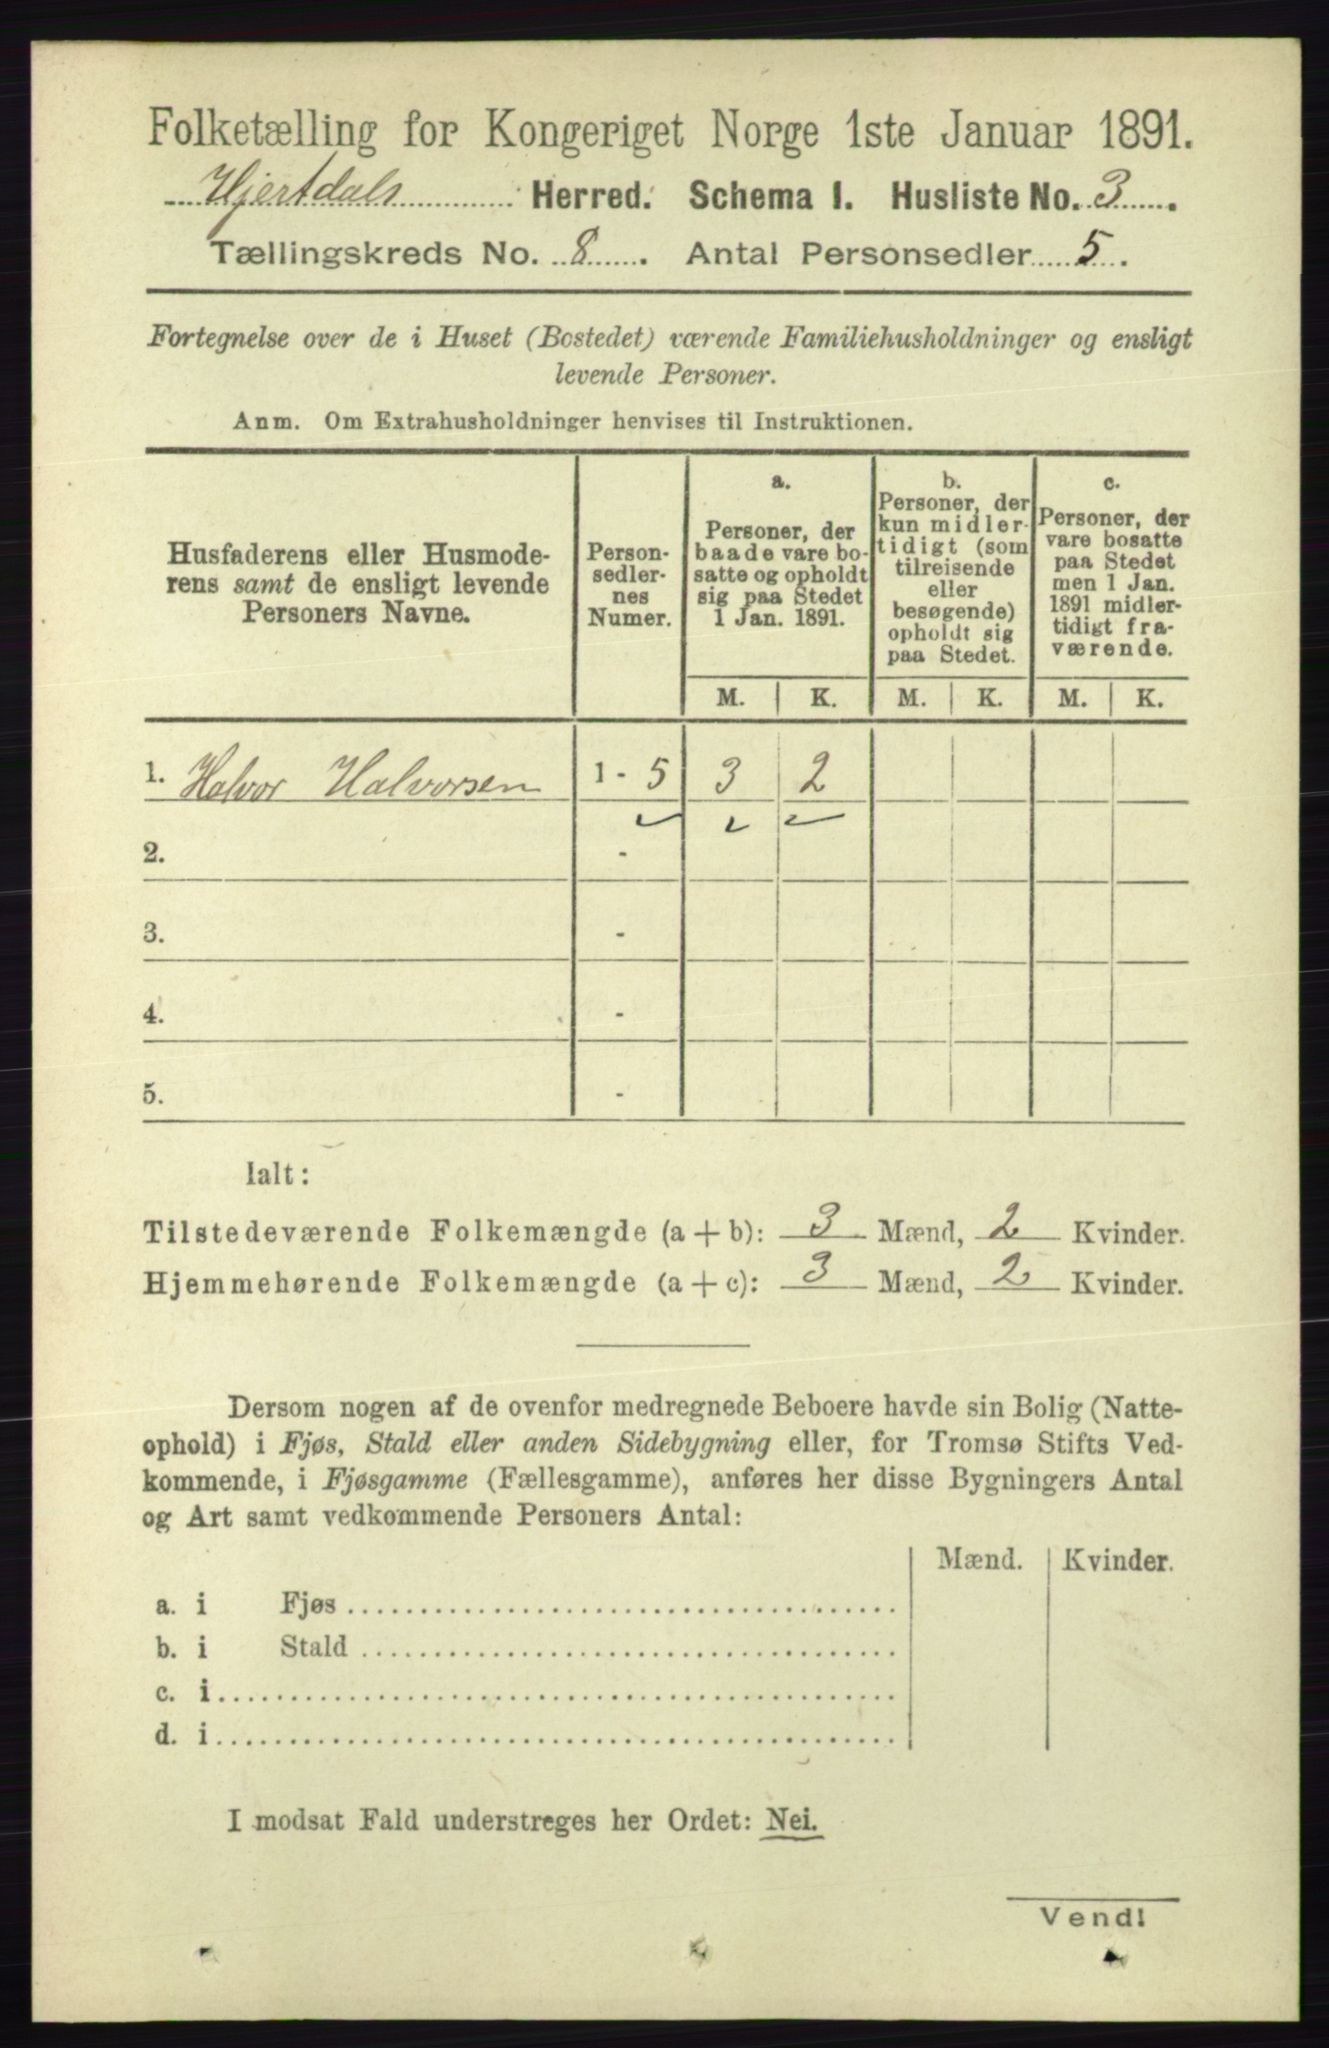 Folketælling for Kongeriget Norge 1ste Januar 1891.
Hjertdals Herred. Schema I. Husliste No. 3.
Tællingskreds No. 8. Antal Personsedler 5.
Fortegnelse over de i Huset (Bostedet) værende Familiehusholdninger og ensligt
levende Personer.
Anm. Om Extrahusholdninger henvises til Instruktionen.
Husfaderens eller Husmode-
rens samt de ensligt levende
Personers Navne.
Person-
sedler-
nes
Numer.
a.
Personer, der
baade vare bo-
satte og opholdt
sig paa Stedet
1 Jan. 1891.
b.
Personer, der
kun midler-
tidigt (som
tilreisende
eller
besøgende)
opholdt sig
paa Stedet.
c.
Personer, der
vare bosatte
paa Stedet
men 1 Jan.
1891 midler-
tidigt fra-
værende.
M. K. M. K. M. K.
1. Halvor Halvorsen 1 - 5 3 2
2. -
3. -
4. -
5. -
Ialt:
Tilstedeværende Folkemængde (a + b): 3 Mænd, 2 Kvinder.
Hjemmehørende Folkemængde (a + c): 3 Mænd, 2 Kvinder.
Dersom nogen af de ovenfor medregnede Beboere havde sin Bolig (Natte-
ophold) i Fjøs, Stald eller anden Sidebygning eller, for Tromsø Stifts Ved-
kommende, i Fjøsgamme (Fællesgamme), anføres her disse Bygningers Antal
og Art samt vedkommende Personers Antal:
Mænd. Kvinder.
a. i Fjøs
b. i Stald
c. i
d. i
I modsat Fald understreges her Ordet: Nei.
Vend!